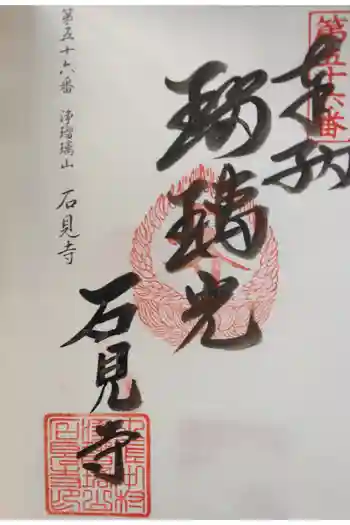 第五十六番
奉納
瑠璃光
石見寺
第五十六番 浄瑠璃山 石見寺